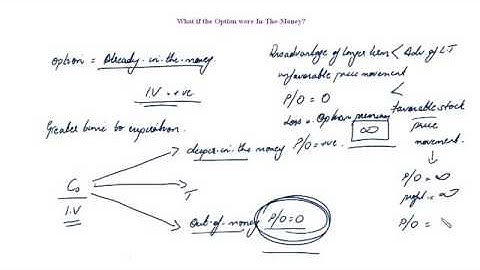 What if the Option were In-The-Money?
option = Already-in-the-money.
I.V = +ve
Greater time to expiration.
C₀
I.V
deeper-in-the money P/O = +ve.
T
Out-of-money P/O = 0
Disadvantage of longer term < Adv of LT
unfavorable price movement <
P/O = 0
Loss = Option premium
∞
favorable stock
price
movement.
↓
P/O = ∞
profit = ∞
P/O =